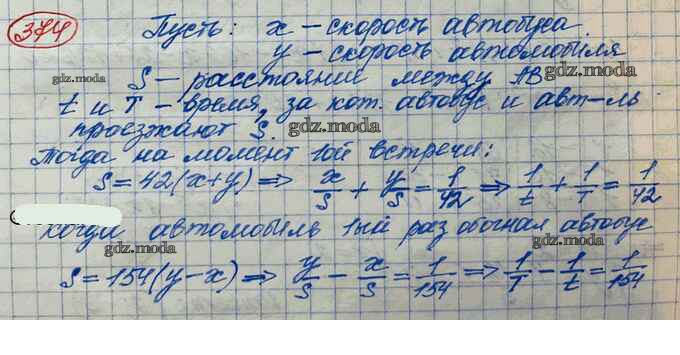 374 Пусть: x – скорость автобуса
y – скорость автомобиля
gdz.moda gdz.moda
S – расстояние между AB
t и T – время, за кот. автобус и авт-ль
проезжают S. gdz.moda
Тогда на момент 1ой встречи:
S=42(x+y) ⇒ x/S + y/S = 1/42 ⇒ 1/t + 1/T = 1/42
gdz.moda
Когда автомобиль 1ый раз обогнал автобус
gdz.moda gdz.moda
S=154(y-x) ⇒ y/S - x/S = 1/154 ⇒ 1/T - 1/t = 1/154
gdz.moda